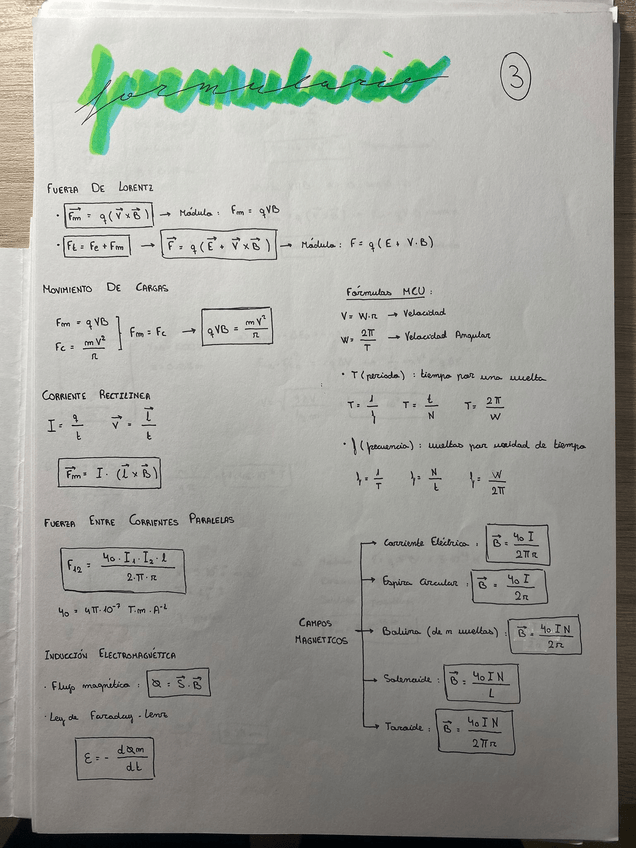 formulario
3
FUERZA DE LORENTZ
· F⃗m = q (V⃗ x B⃗) → Módulo : Fm = qVB
· Ft = Fe + Fm → F⃗ = q (E⃗ + V⃗ x B⃗) → Módulo : F = q (E + V·B)
MOVIMIENTO DE CARGAS
Fm = qVB
Fc = mV²/R
Fm = Fc → qVB = mV²/R
CORRIENTE RECTILINEA
I = q/t V⃗ = l⃗/t
F⃗m = I · (l⃗ x B⃗)
FUERZA ENTRE CORRIENTES PARALELAS
F₁₂ = μ₀ · I₁ · I₂ · l / 2·π·R
μ₀ = 4π·10⁻⁷ T·m·A⁻¹
INDUCCIÓN ELECTROMAGNÉTICA
· Flujo magnético : Φ = S⃗ · B⃗
· Ley de Faraday - Lenz
Ɛ = - dΦm/dt
Fórmulas MCU :
V = W·R → Velocidad
W = 2π/T → Velocidad Angular
· T (periodo) : tiempo por una vuelta
T = 1/f T = t/N T = 2π/W
· f (frecuencia) : vueltas por unidad de tiempo
f = 1/T f = N/t f = W/2π
CAMPOS MAGNETICOS
Corriente Eléctrica : B⃗ = μ₀ I / 2πR
Espira Circular : B⃗ = μ₀ I / 2R
Bobina (de n vueltas) : B⃗ = μ₀ I N / 2R
Solenoide : B⃗ = μ₀ I N / L
Toroide : B⃗ = μ₀ I N / 2πR